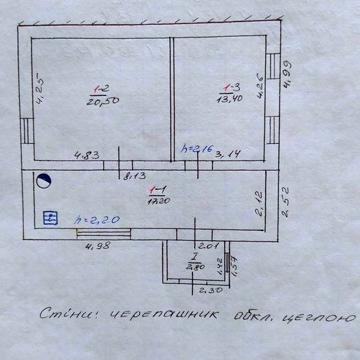 1-2
20,50
4,25
1-3
13,40
4,25
4,99
h=2,16
4,83
3,14
8,13
1-1
17,20
2,12
2,52
h=2,20
4,98
2,01
I
2,80
1,42
1,57
2,30
Стіни: черепашник обкл. цеглою